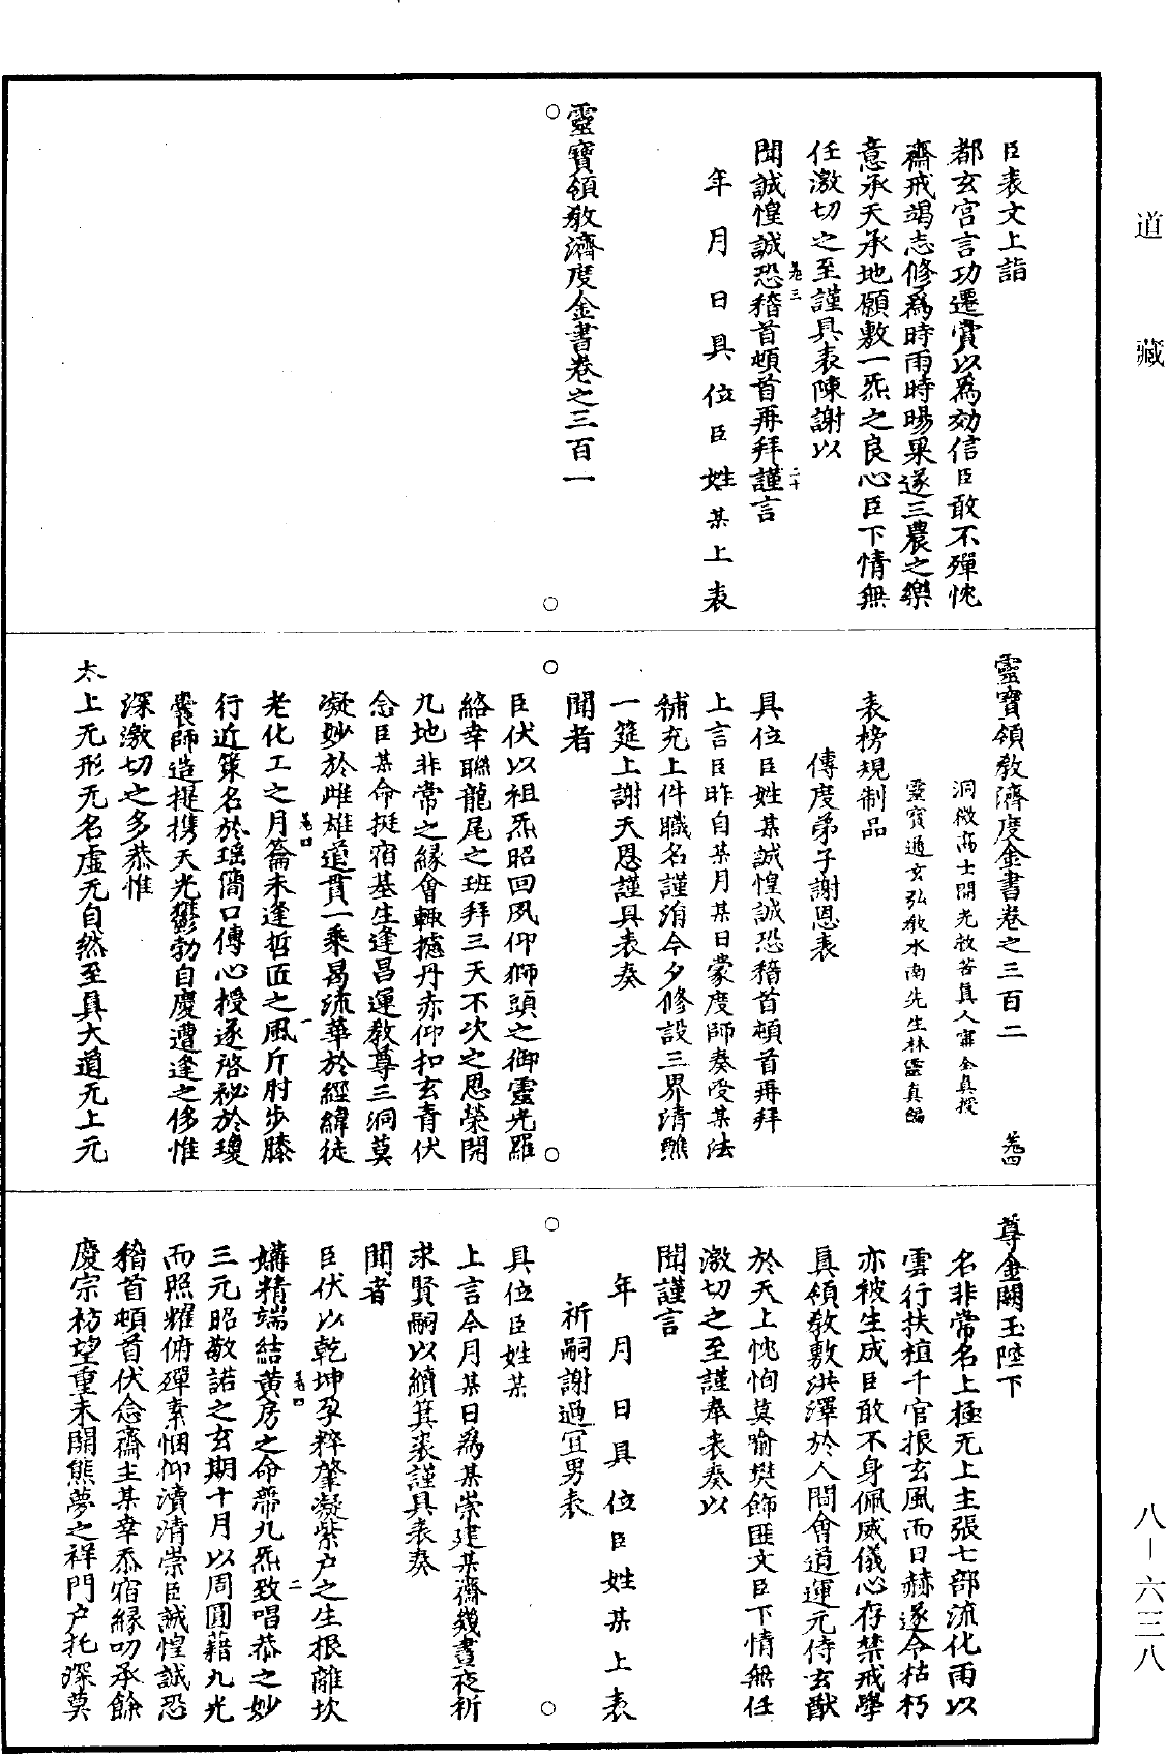 道藏
臣表文上詣
都玄宮言功遷賞以為効信臣敢不殫忱
齋戒竭志修為時雨時暘果遂三農之樂
意承天承地願敷一炁之良心臣下情無
任激切之至謹具表陳謝以
聞誠惶誠恐稽首頓首再拜謹言
卷三
二十
年月日具位臣姓某上表
靈寶領教濟度金書卷之三百一
靈寶領教濟度金書卷之三百二
卷四
洞微高士開光救苦真人甯全真授
靈寶通玄弘教水南先生林靈真編
表榜規制品
傳度弟子謝恩表
具位臣姓某誠惶誠恐稽首頓首再拜
上言臣昨自某月某日蒙度師奏受某法
補充上件職名謹涓今夕修設三界清醮
一筵上謝天恩謹具表奏
聞者
臣伏以祖炁昭回夙仰獅頭之御靈光羅
絡幸聯龍尾之班拜三天不次之恩榮開
九地非常之緣會輙攄丹赤仰扣玄青伏
念臣某命挺宿基生逢昌運教尊三洞莫
凝妙於雌雄道貫一乘曷流華於經緯徒
卷四
一
老化工之月篇未逢哲匠之風斤肘步膝
行近策名於瑶簡口傳心授逐啓祕於瓊
囊師造提携天光鬱勃自慶遭逢之侈惟
深激切之多恭惟
太上无形无名虛无自然至真大道无上元
尊金闕玉陛下
名非常名上極无上主張七部流化雨以
雲行扶植千官振玄風而日赫遂令枯朽
亦被生成臣敢不身佩威儀心存禁戒學
真領教敷洪澤於人間會道運元侍玄猷
於天上忱恂莫喻樊飾匪文臣下情無任
激切之至謹奉表奏以
聞謹言
年月日具位臣姓某上表
祈嗣謝過宜男表
具位臣姓某
上言今月某日為某崇建某齋幾晝夜祈
求賢嗣以續箕裘謹具表奏
聞者
臣伏以乾坤孕粹肇凝紫户之生根離坎
媾精端結黃房之命蔕九炁致唱恭之妙
卷四
二
三元昭敬諾之玄期十月以周圓藉九光
而照耀俯殫素悃仰瀆清崇臣誠惶誠恐
稽首頓首伏念齋主某幸忝宿緣叨承餘
慶宗枋望重未開熊夢之祥門户托深奠
八－六三八